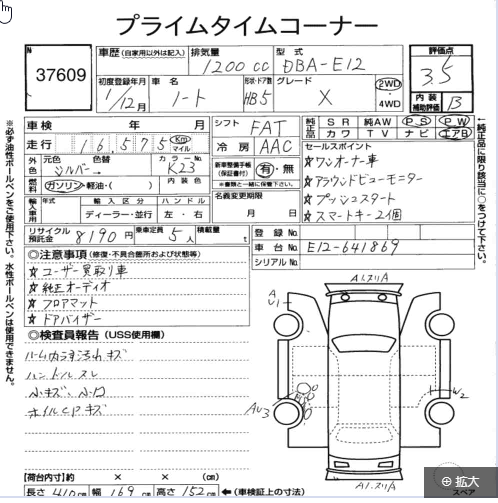 プライムタイムコーナー
N
37609
車歴(自家用以外は記入)
排気量 1200 cc
型式 DBA-E12
評価点 3.5
初度登録年月 1/12月
車名 ノート
形状・ドア数 HB5
グレード X
2WD・4WD
内装補助評価 B
車検 年 月
シフト FAT
純正品 SR 純AW PS PW
カワ TV ナビ エアB
走行 16,575 Km マイル
冷房 AAC
セールスポイント
☆ワンオーナー車
☆アラウンドビューモニター
☆プッシュスタート
☆スマートキー2個
外色 元色 シルバー 色替 カラーNo. K23
燃料 ガソリン・軽油・( ) 内装色
新車整備手帳(保証書付) 有・無
※書類と一緒に保管下さい。
輸入車用 年式 輸入区分 ハンドル
ディーラー・並行 左・右
名義変更期限 月 日
リサイクル預託金 8190円
乗車定員 5人
積載量 t
登録No.
車台No. E12-641869
シリアルNo.
◎注意事項(修復・不具合箇所および状態等)
☆ユーザー買取り車
☆純正オーディオ
☆フロアマット
☆ドアバイザー
◎検査員報告(USS使用欄)
ハンドルスレ
小キズ、小凹
ホイルCPキズ
【荷台内寸】約 × × (cm)
長さ 410cm 幅 169cm 高さ 152cm ←(車検証上の寸法)
A1.スリA
A
U1
AU3
W2
A1.スリA
スペア
拡大
※必ず油性ボールペンをご使用下さい。水性ボールペンは使用できません。
←純正品に限り該当に○をつけて下さい。